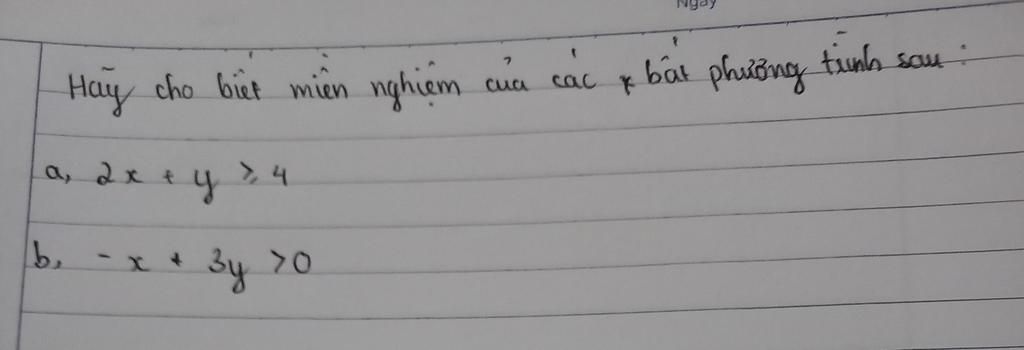 Ngày
Hãy cho biết miền nghiệm của các bất phương trình sau :
a, 2x + y ≥ 4
b, -x + 3y > 0